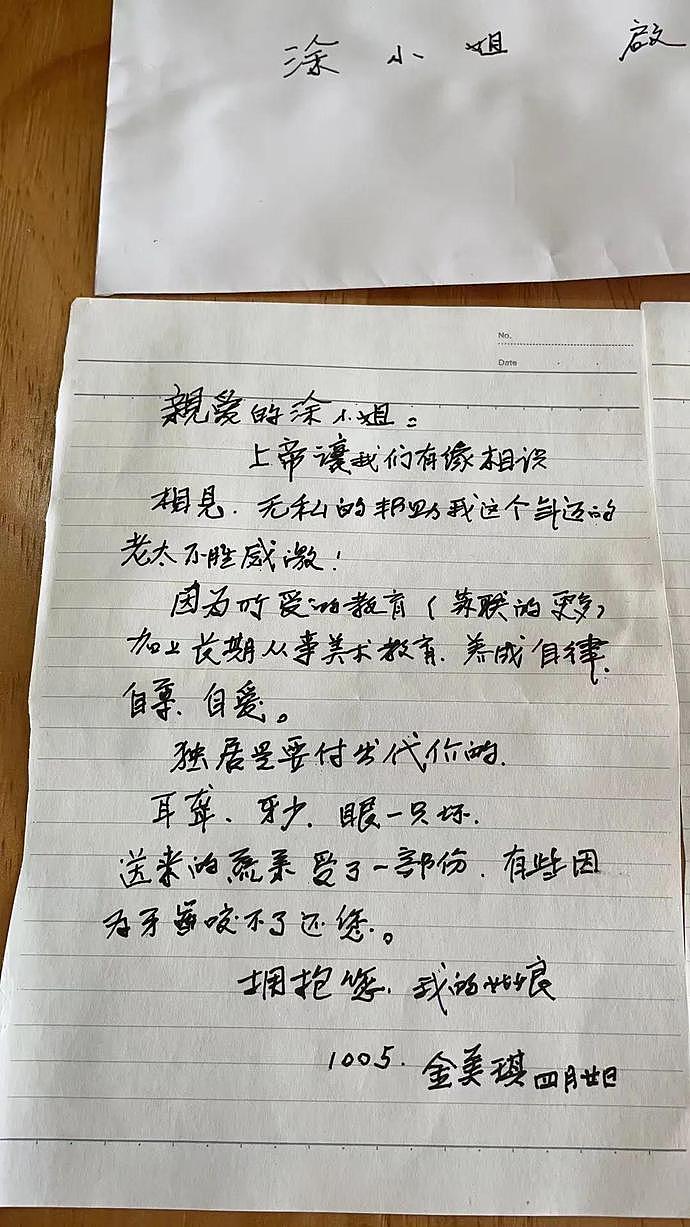 涂小姐 启
No.
Date
親爱的涂小姐：
上帝讓我们有缘相识
相見. 无私的帮助我这个年迈的
老太不胜感激！
因为所受的教育（苏联的更多）
加上长期从事美术教育. 养成自律.
自尊. 自爱。
独居是要付出代价的.
耳聋. 牙少. 眼一只坏.
送来的蔬菜受了一部份. 有些因
为牙齒咬不了还您.。
拥抱您. 我的姑娘
1005. 金美琪 四月廿日